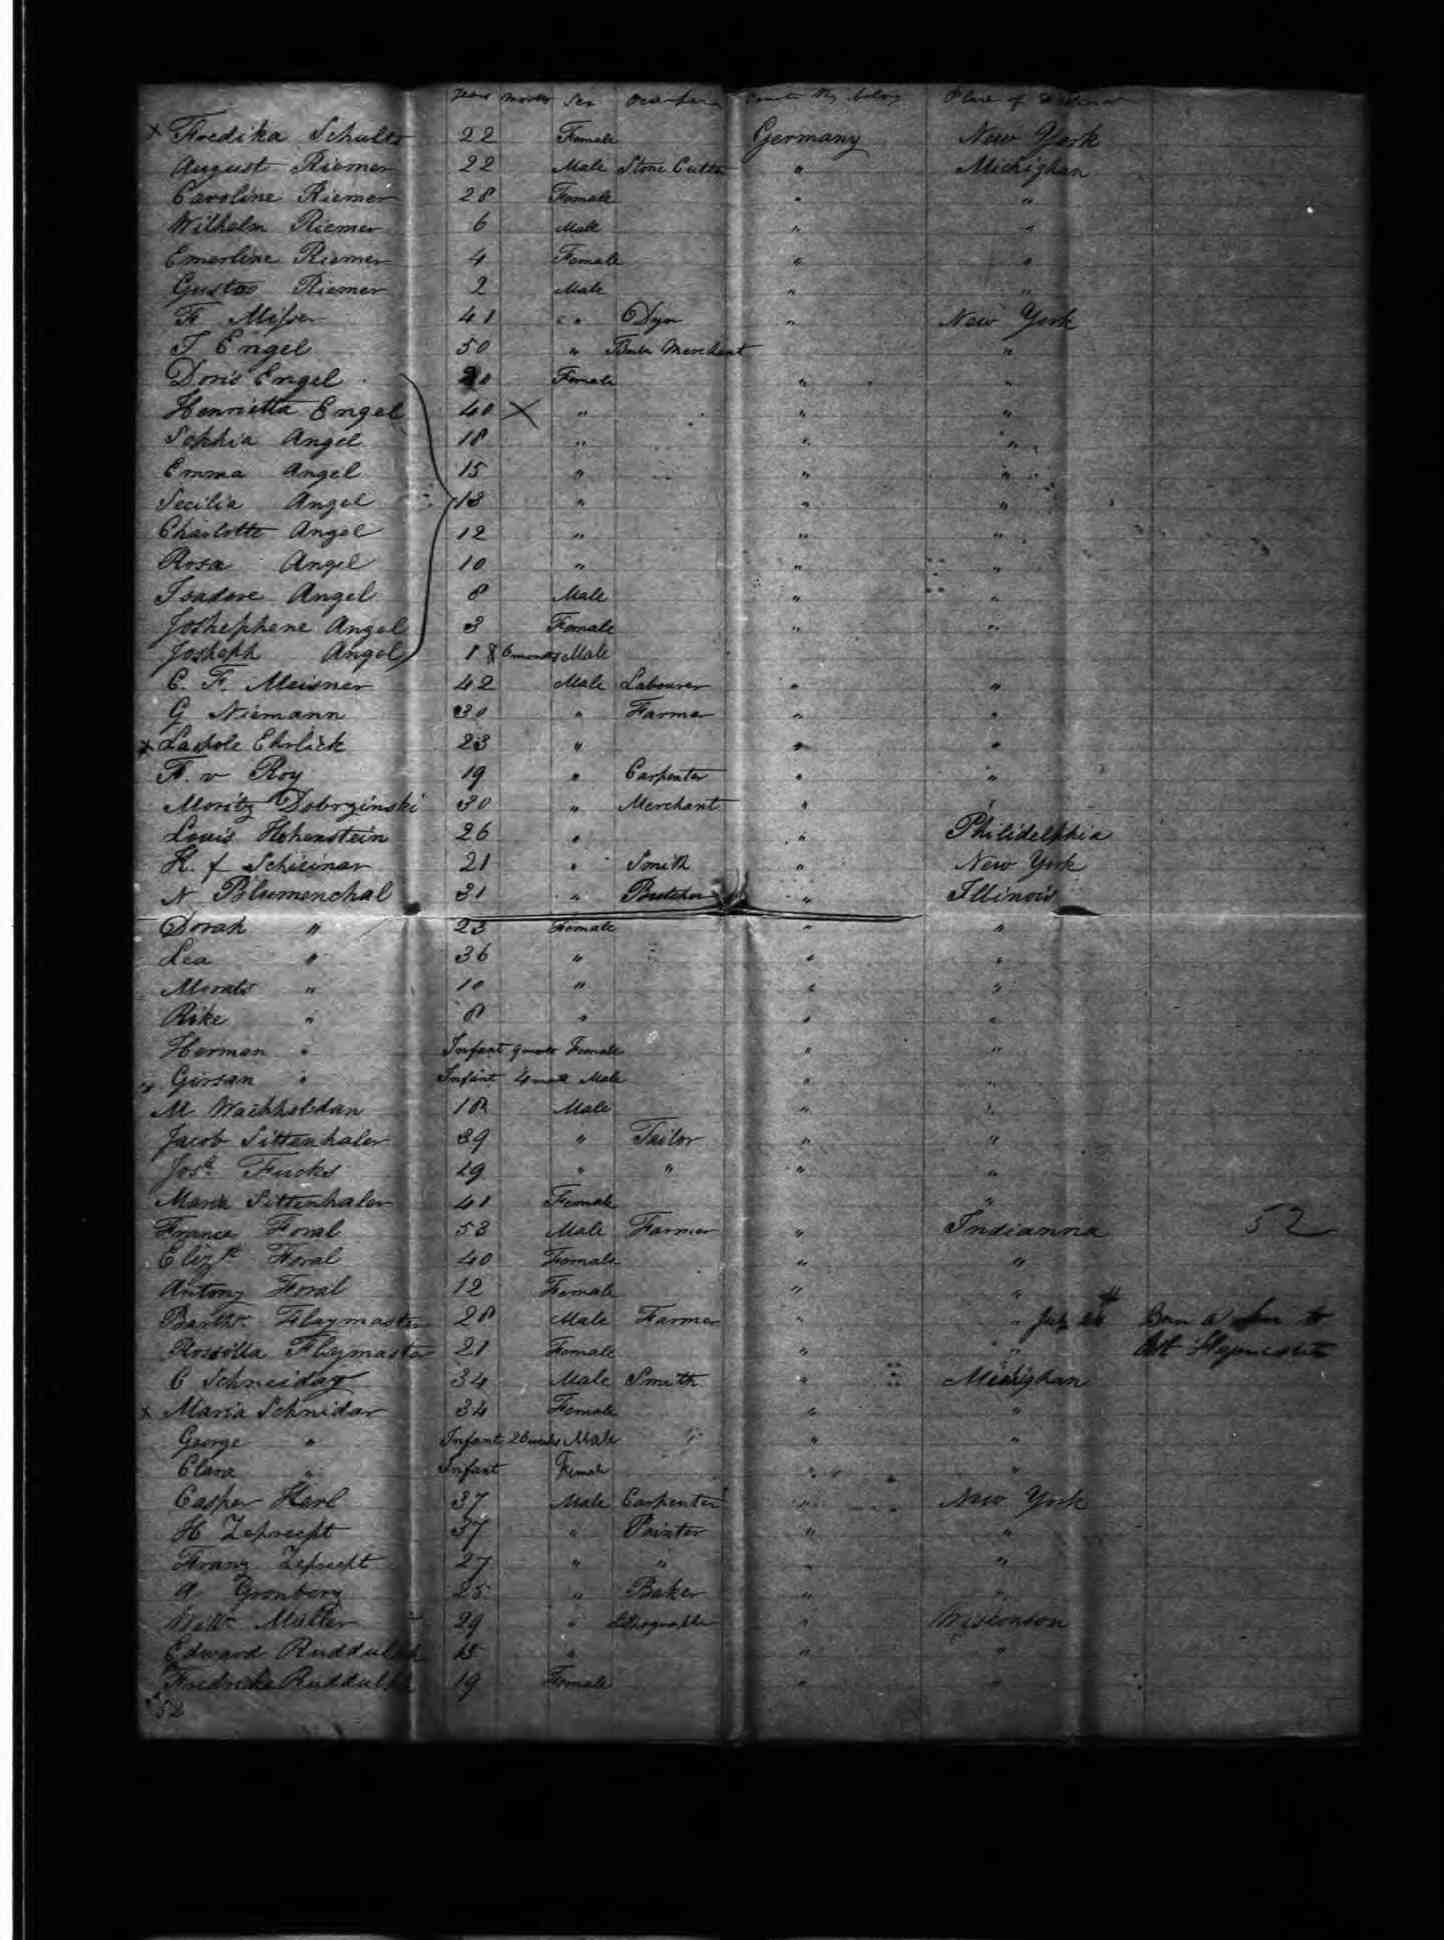 Years Months Sex Occupation Country they belong Place of
x Fredika Schults 22 Female Germany New York
August Riemer 22 Male Stone Cutter " Michighan
Caroline Riemer 28 Female " "
Wilhelm Riemer 6 Male " "
Emerline Riemer 4 Female " "
Gustav Riemer 2 Male " "
F. Misser 41 " Dyer " New York
J Engel 50 " Merchant "
Doris Engel Female " "
Henrietta Engel 40 X " " "
Sophia Angel 18 " " "
Emma Angel 15 " " "
Secilia Angel 13 " " "
Charlotte Angel 12 " " "
Rosa Angel 10 " " "
Isadore Angel 8 Male " "
Joshephene Angel 3 Female " "
Josheph Angel 1 8 months Male
C. F. Meisner 42 Male Labourer " "
G Niemann 30 " Farmer " "
x Ehrlick 23 " " "
F. v Roy 19 " Carpenter " "
Moritz Dobrzinski 30 " Merchant " "
Louis Hohenstein 26 " " Philidelphia
H. f Scheinar 21 " Smith " New York
N Blumenchal 31 " Butcher " Illinois
Dorah " 23 Female " "
Lea " 36 " " "
Morats " 10 " " "
Rike " 8 " " "
Herman " Infant 9 months Female " "
Girsan " Infant 4 months Male " "
M. Wachholdan 18 Male " "
Jacob Sittenhaler 39 " Tailor " "
Josh. Fucks 19 " " " "
Maria Sittenhaler 41 Female "
France Foral 53 Male Farmer " Indianna 52
Elizth Foral 40 Female " "
Antony Foral 12 Female " "
Barthw. Flaymaster 28 Male Farmer " " Born a Son to
Rosilla Flaymaster 21 Female " "
C Schneiday 34 Male Smith " Michighan
x Maria Schnidar 34 Female " "
George " Infant Male " "
Clara " Infant Female " "
Casper Herl 37 Male Carpenter " New York
H Zeprecht 37 " Painter " "
Franz Zeprecht 27 " " " "
A Gronberg 25 " Baker " "
Willm. Muller 29 " " Wisconson
Edward Ruddulph 15 " " "
Fredricke Ruddulph 19 Female " "
52